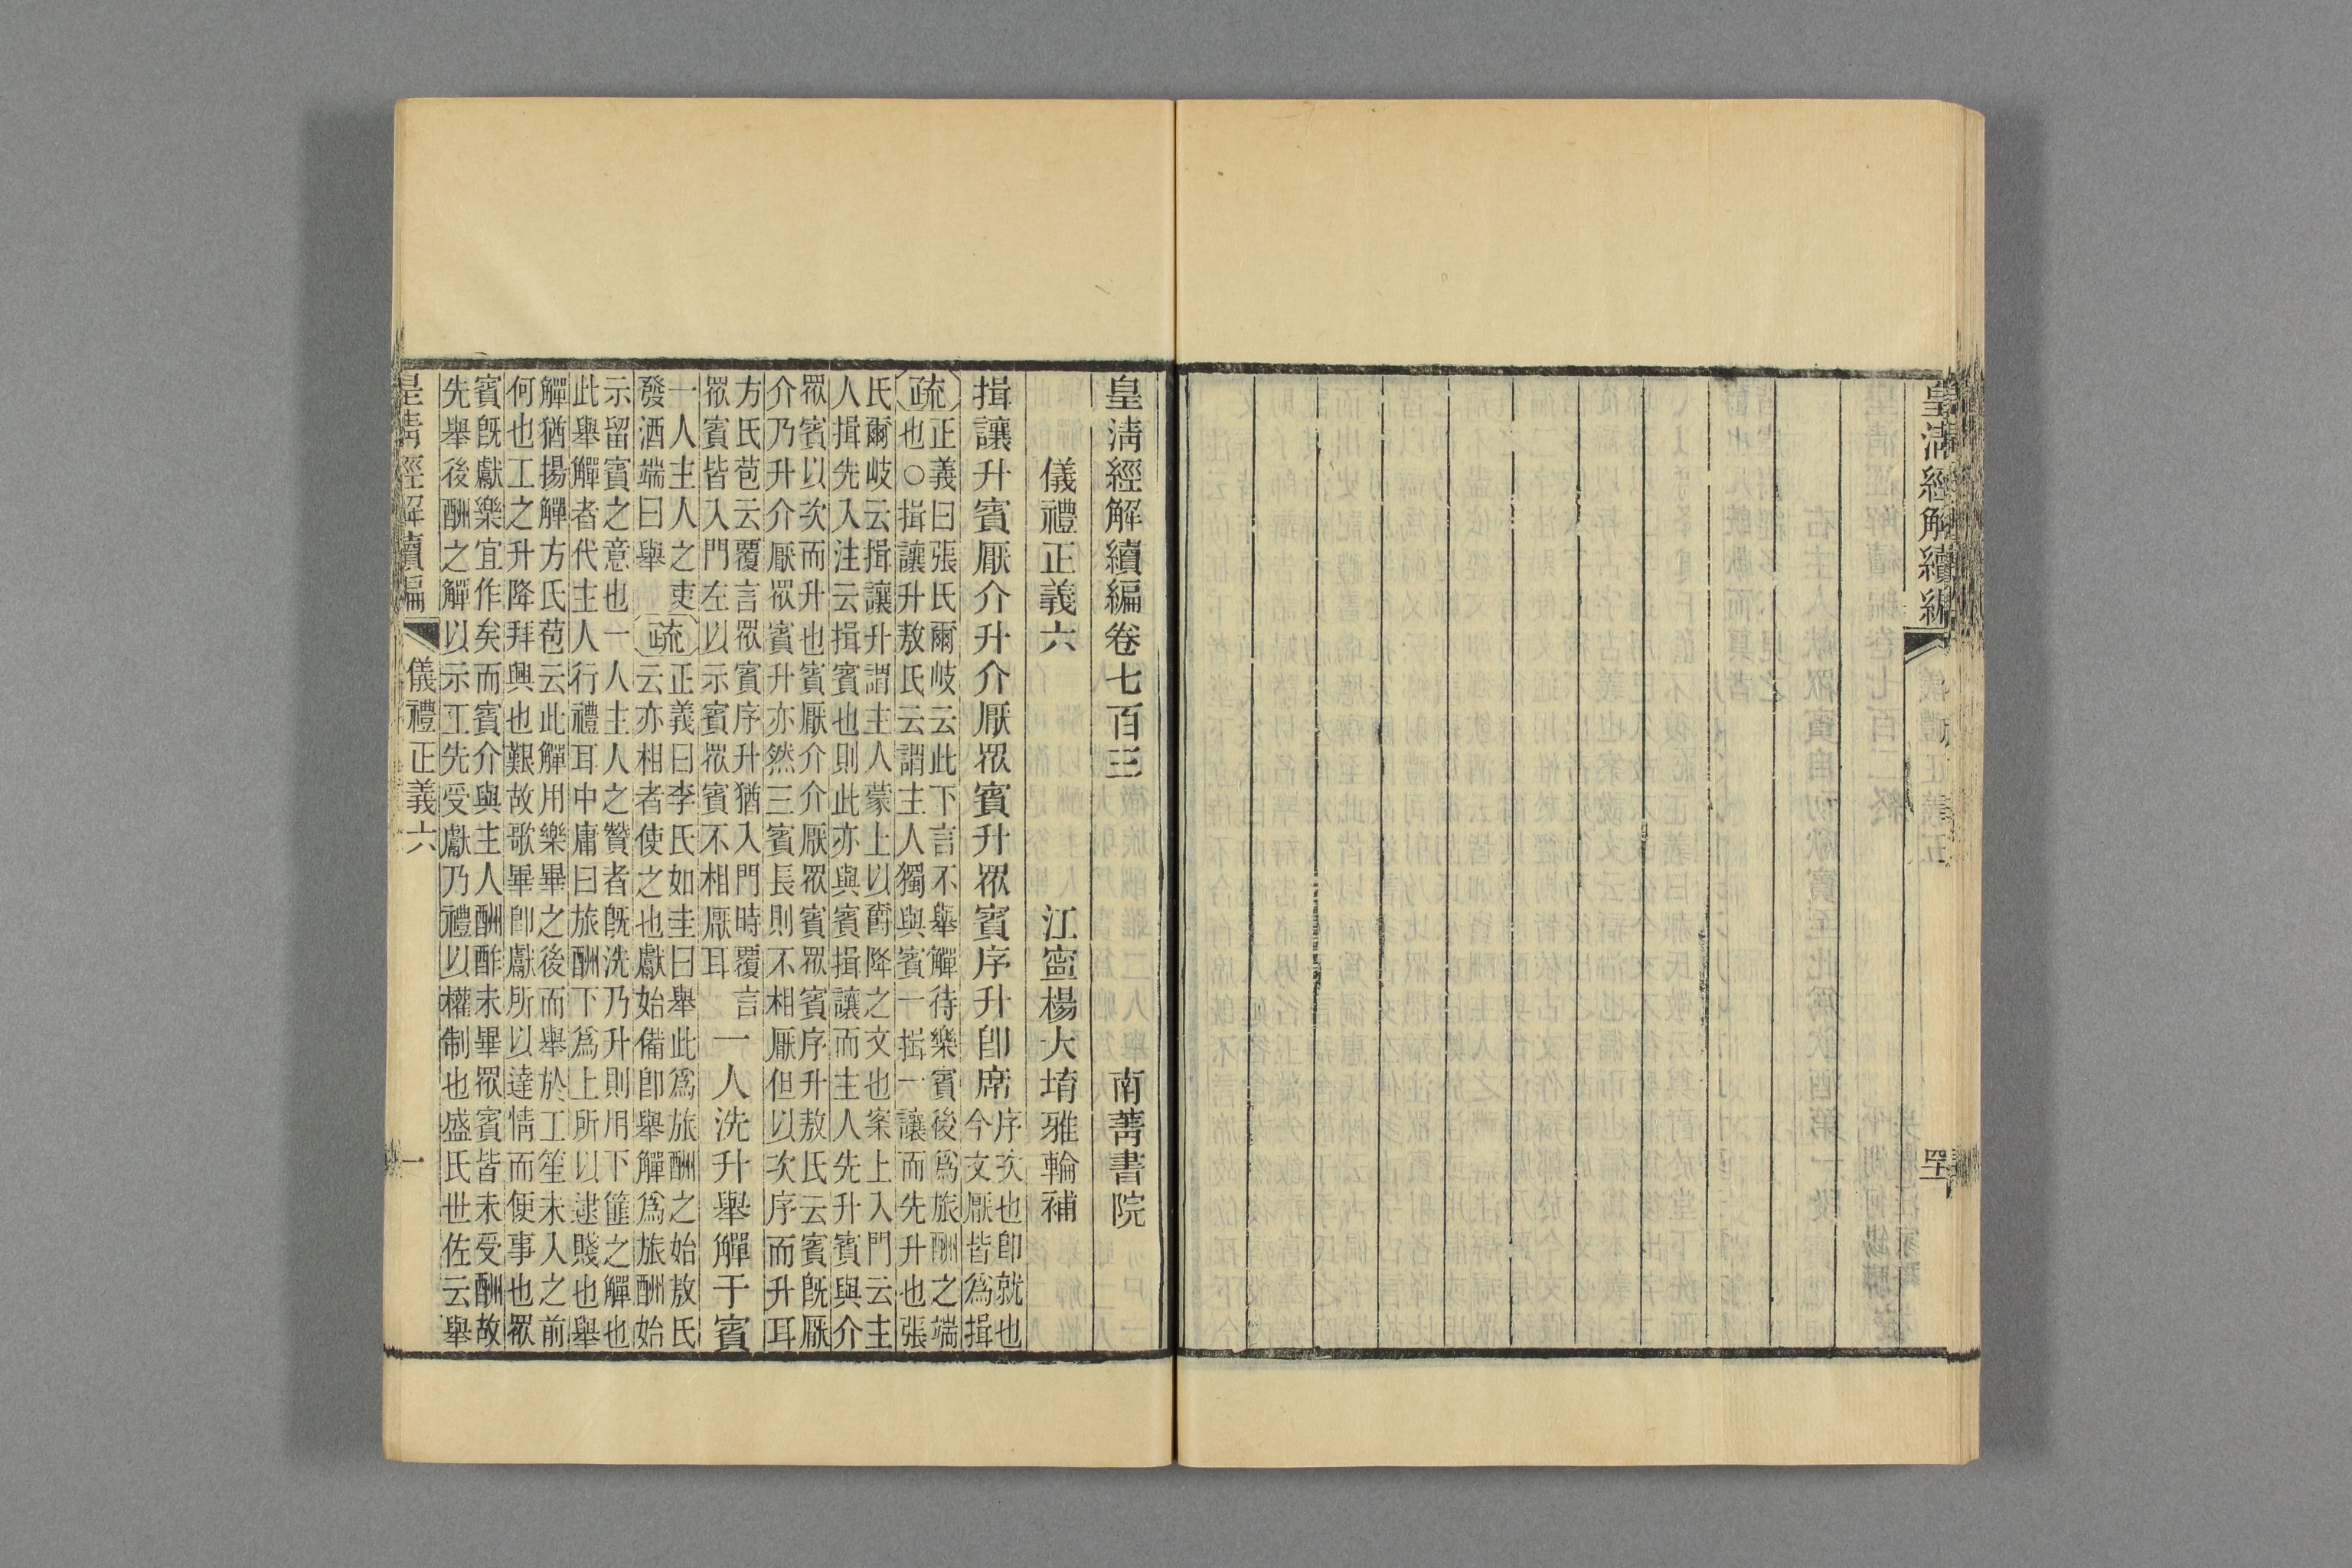 皇清經解續編
皇清經解續編卷七百三 南菁書院
儀禮正義六 江寧楊大堉雅輪補
揖讓升賓厭介升介厭眾賓升眾賓序升卽席
序次也卽就也
今文厭皆為揖
疏
正義曰張氏爾岐云此下言不舉觶待樂賓後為旅酬之端
也○揖讓升敖氏云謂主人獨與賓一揖一讓而先升也張
氏爾岐云揖讓升謂主人蒙上以爵降之文也案上入門云主
人揖先入注云揖賓也則此亦與賓揖讓而主人先升賓與介
眾賓以次而升也賓厭介介厭眾賓眾賓序升敖氏云賓旣厭
介乃升介厭眾賓升亦然三賓長則不相厭但以次序而升耳
方氏苞云覆言眾賓序升猶入門時覆言
眾賓皆入門左以示賓眾賓不相厭耳
一人洗升舉觶于賓
一人主人之吏
發酒端曰舉
疏
正義曰李氏如圭曰舉此為旅酬之始敖氏
云亦相者使之也獻始備卽舉觶為旅酬始
示留賓之意也一人主人之贊者旣洗乃升則用下篚之觶也
此舉觶者代主人行禮耳中庸曰旅酬下為上所以逮賤也舉
觶猶揚觶方氏苞云此觶用樂畢之後而舉於工笙未入之前
何也工之升降拜興也艱故歌畢卽獻所以達情而便事也眾
賓旣獻樂宜作矣而賓介與主人酬酢未畢眾賓皆未受酬故
先舉後酬之觶以示工先受獻乃禮以權制也盛氏世佐云舉
皇清經解續編 儀禮正義六 一